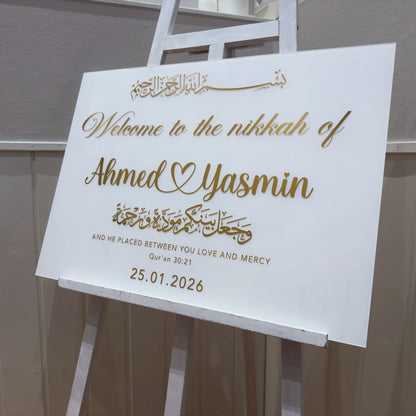 بسم الله الرحمن الرحيم
Welcome to the nikkah of
Ahmed Yasmin
وجعل بينكم مودة ورحمة
AND HE PLACED BETWEEN YOU LOVE AND MERCY
Qur'an 30:21
25.01.2026